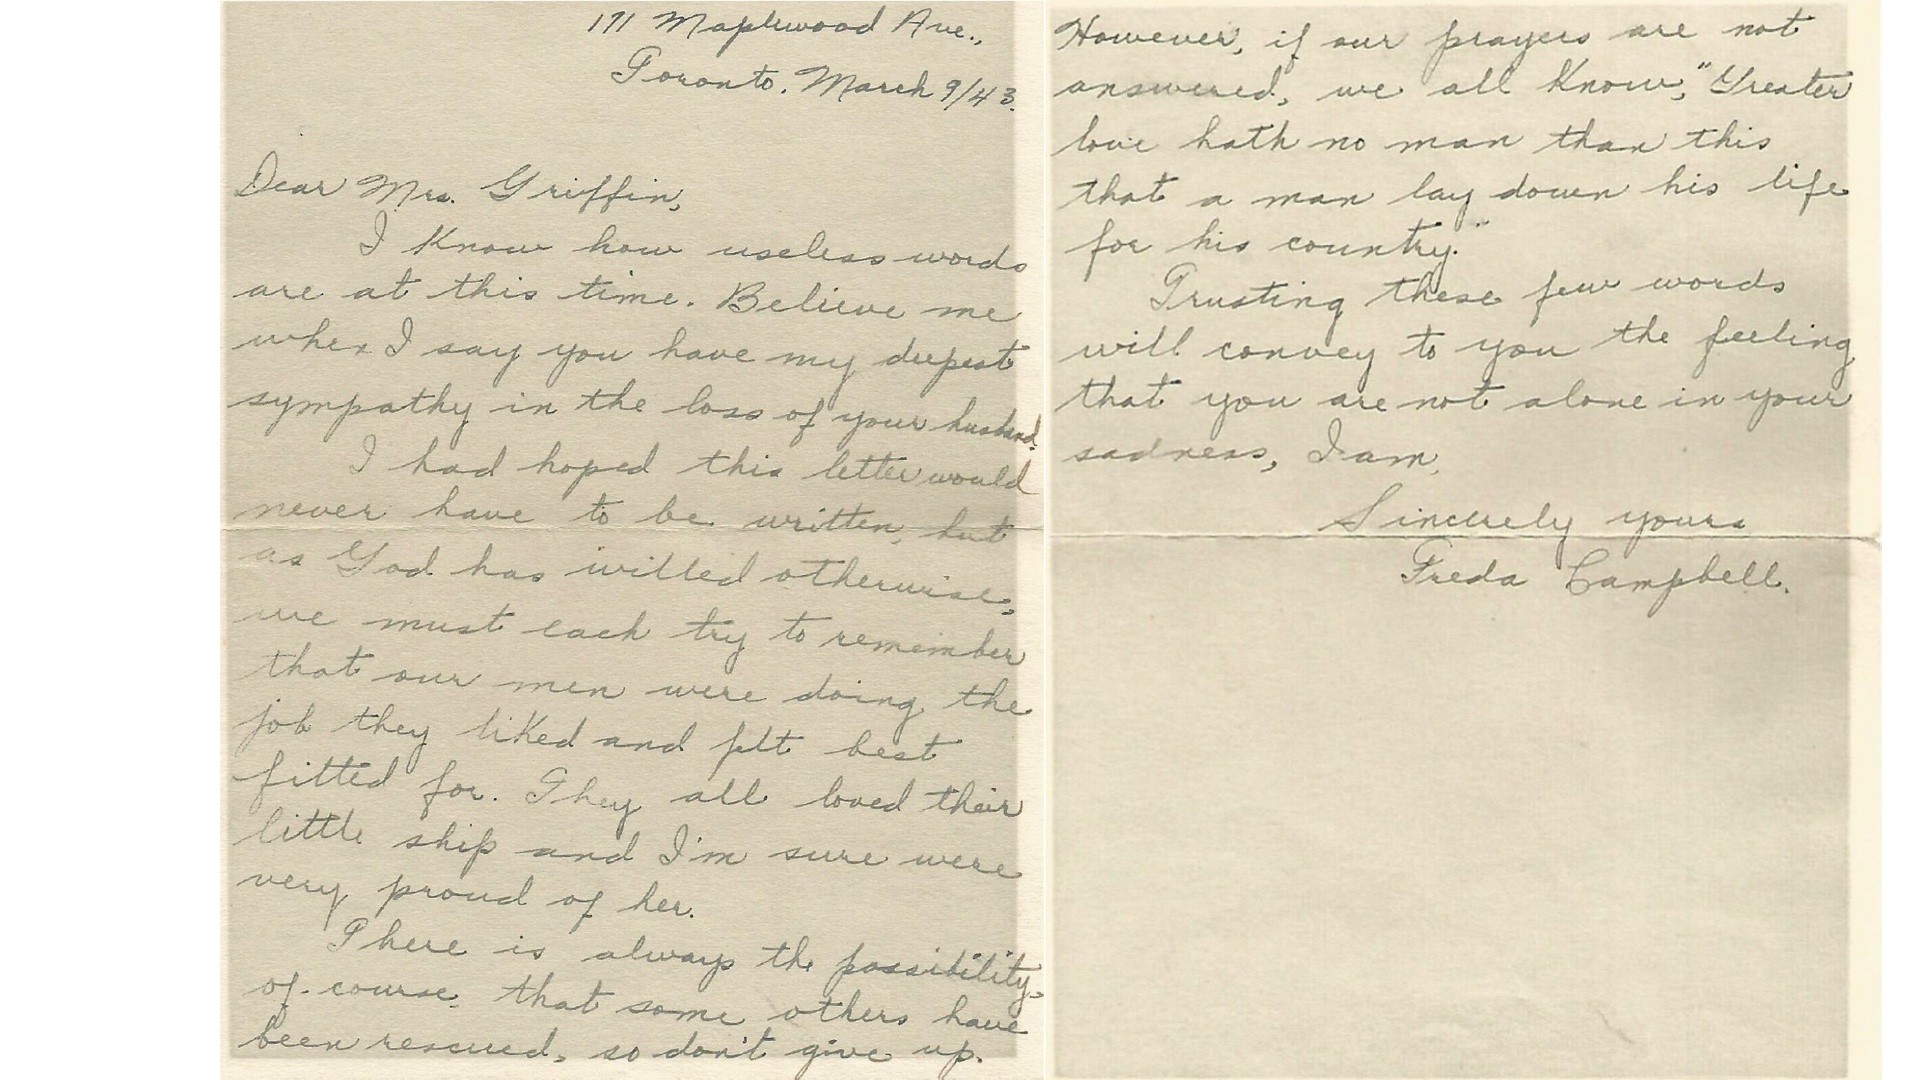 171 Maplewood Ave.,
Toronto. March 9/43.
Dear Mrs. Griffin,
I know how useless words
are at this time. Believe me
when I say you have my deepest
sympathy in the loss of your husband.
I had hoped this letter would
never have to be written, but
as God has willed otherwise,
we must each try to remember
that our men were doing the
job they liked and felt best
fitted for. They all loved their
little ship and I'm sure were
very proud of her.
There is always the possibility,
of course, that some others have
been rescued, so don't give up.
However, if our prayers are not
answered, we all know, "Greater
love hath no man than this
that a man lay down his life
for his country."
Trusting these few words
will convey to you the feeling
that you are not alone in your
sadness, I am,
Sincerely yours
Freda Campbell.